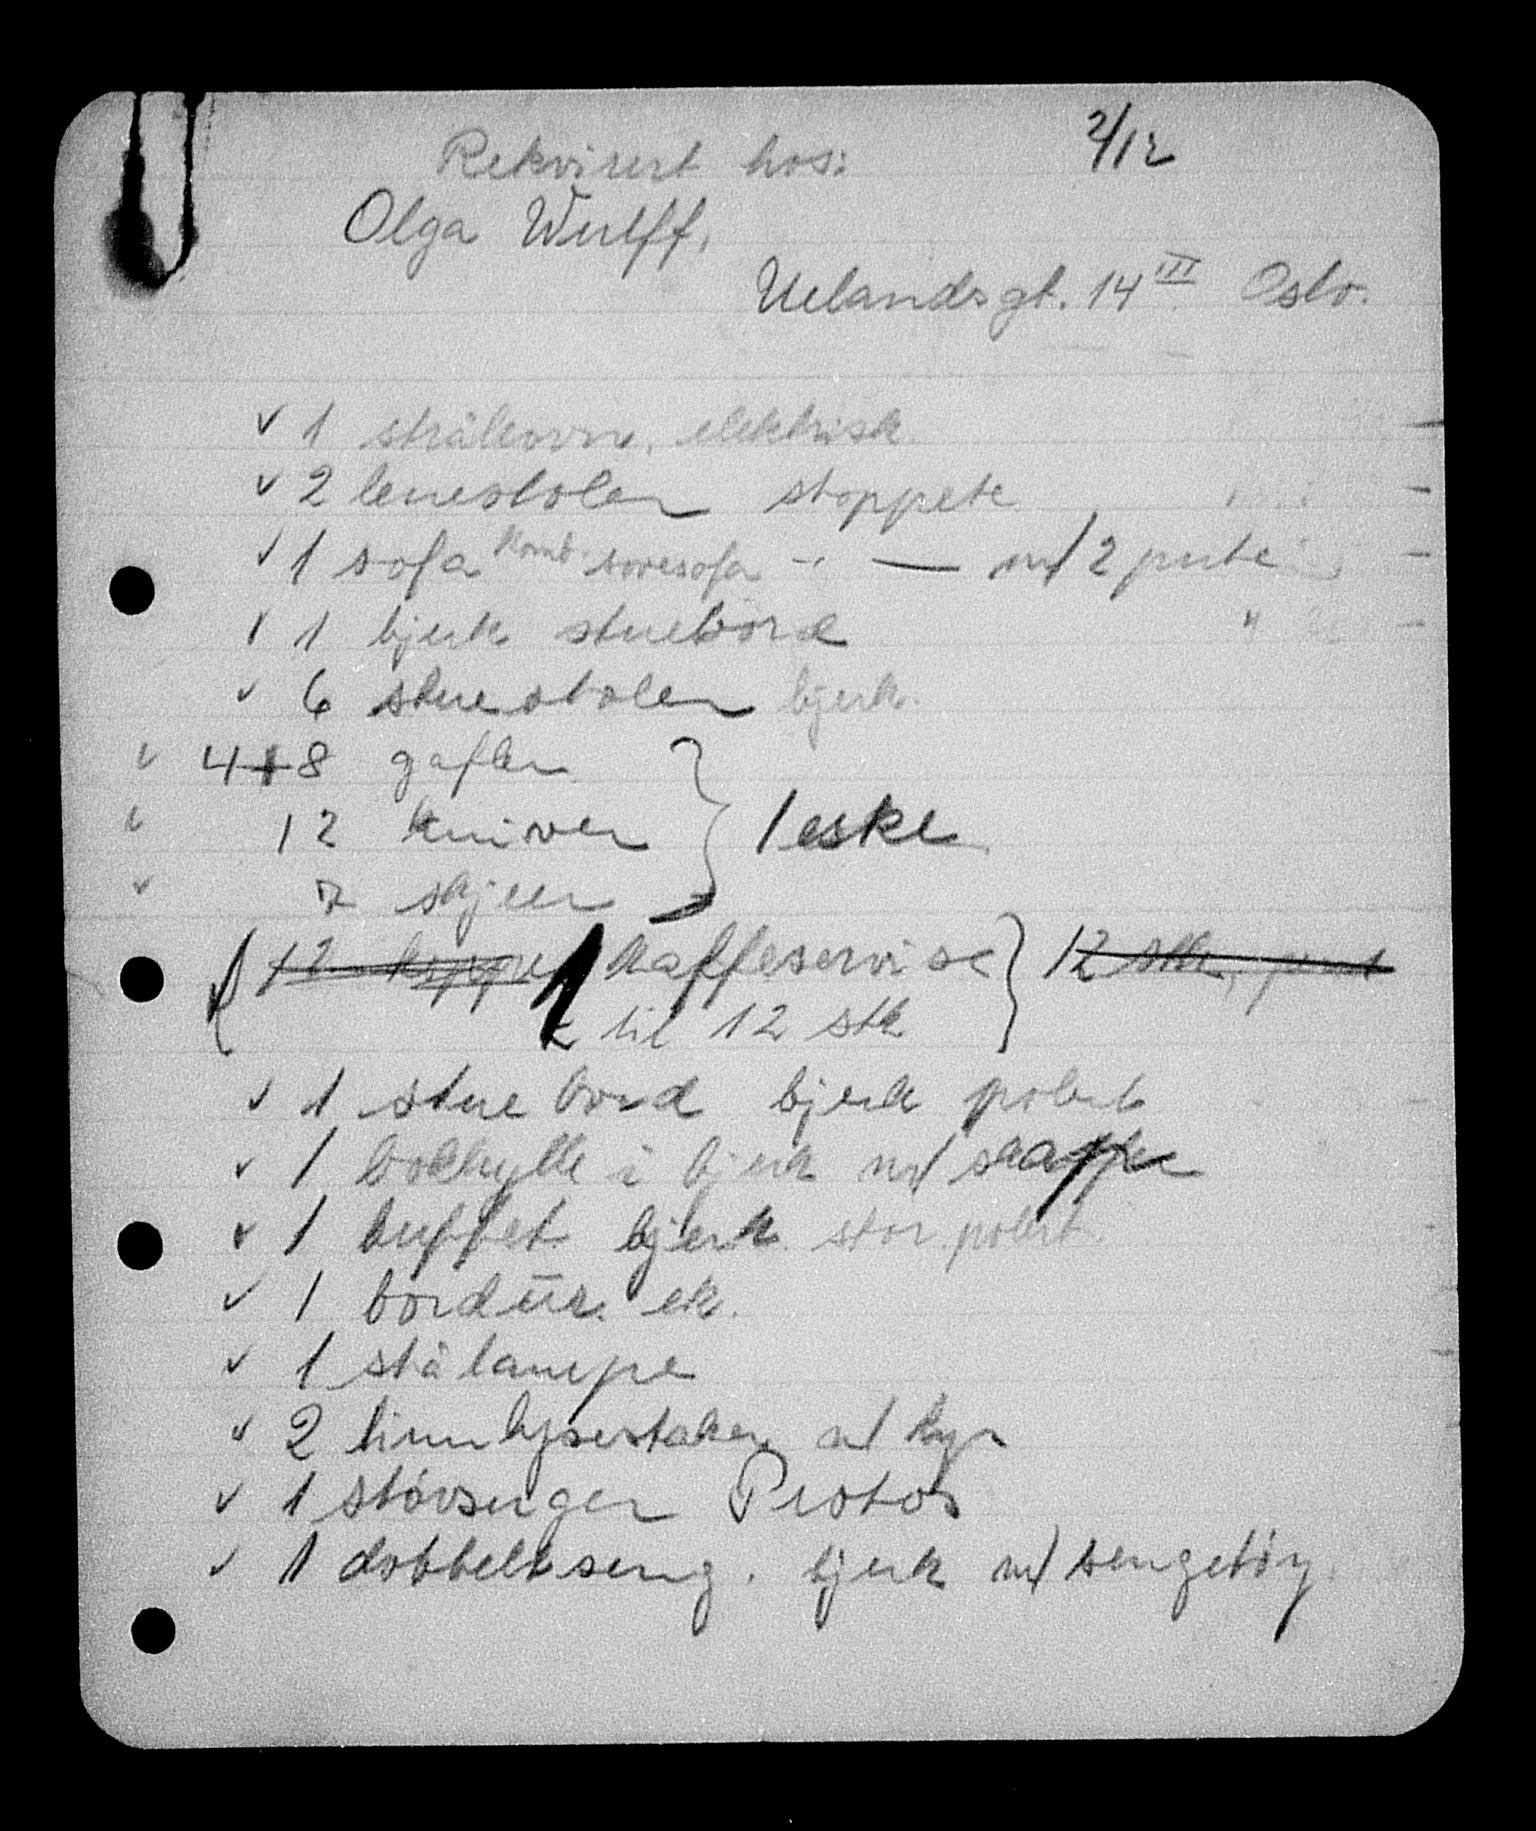 2/12
Rekvirert hos:
Olga Wulff,
Uelandsgt. 14 III Oslo.
✓ 1 stråleovn, elektrisk
✓ 2 lenestoler stoppete
✓ 1 sofa komb. sovesofa -"- — m/ 2 pute
✓ 1 bjerk stuebord "
✓ 6 stuestoler bjerk.
✓ 4+8 gafler
✓ 12 kniver } 1 eske
✓ 7 skjeer
{ 12 kopper 1 kaffeservise } 12 stk,
til 12 stk
✓ 1 stuebord bjerk polert
✓ 1 bokhylle i bjerk m/ skaffer
✓ 1 buffet bjerk stor polert.
✓ 1 bordur. ek.
✓ 1 stålampe
✓ 2 tinnlysestaker m/ lys
✓ 1 støvsuger Protos
✓ 1 dobbeltseng. bjerk m/ sengetøy